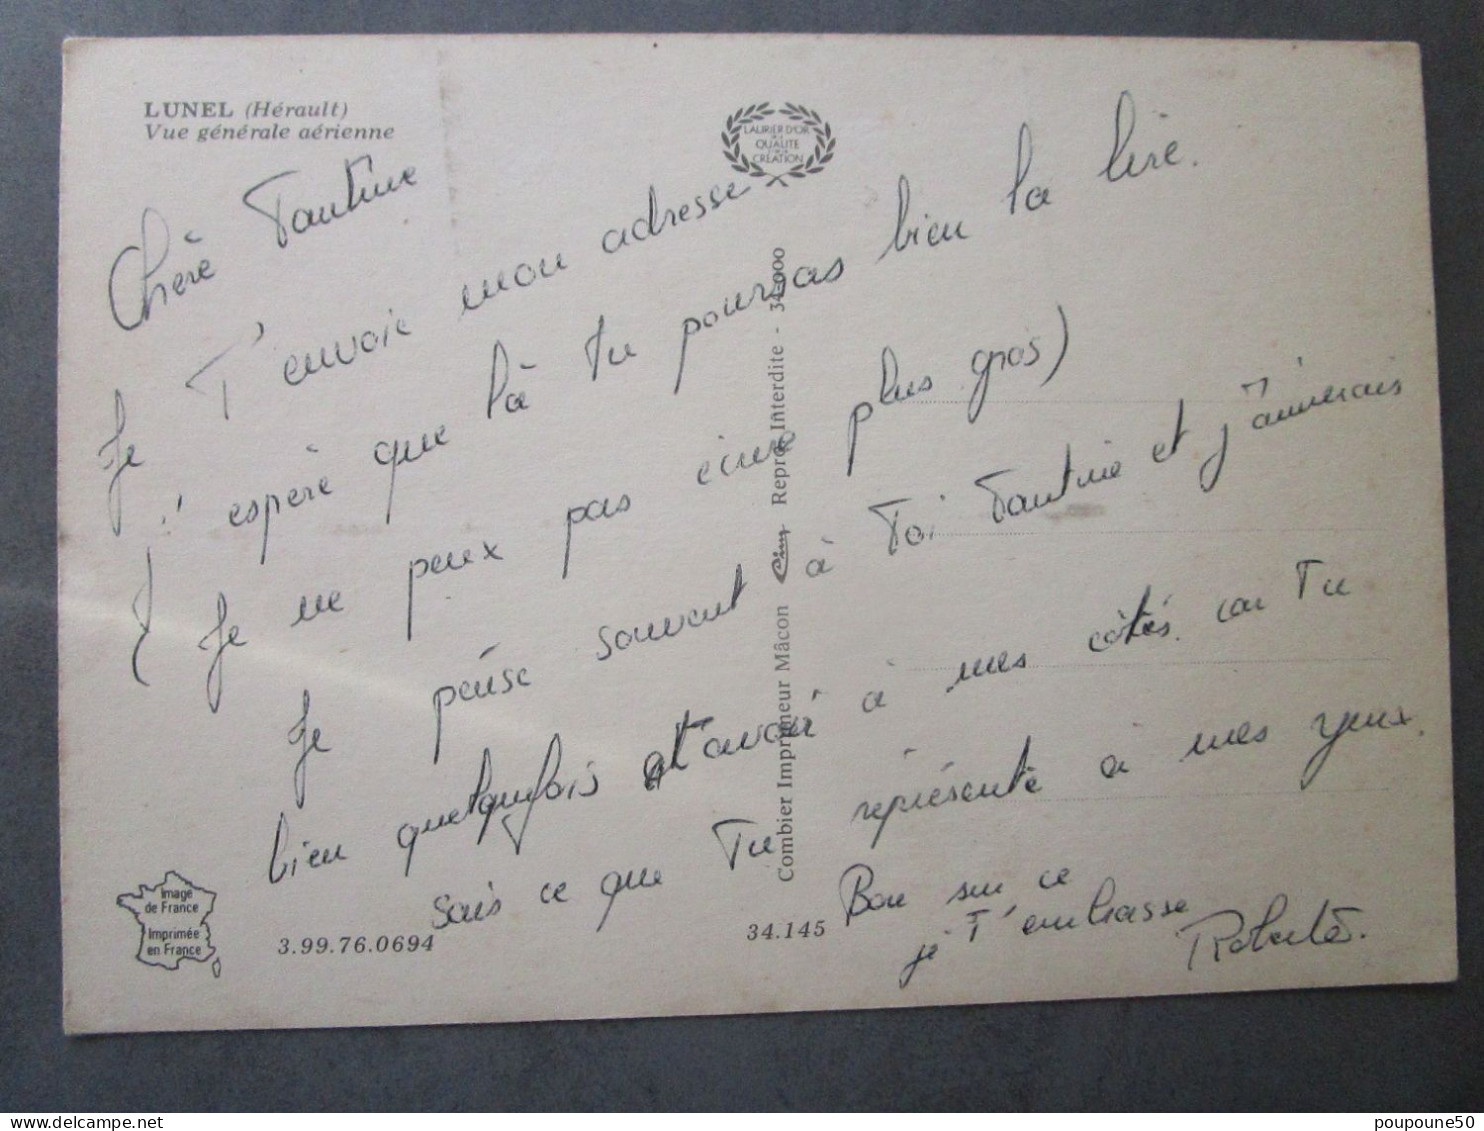 LUNEL (Hérault)
Vue générale aérienne
LAURIER D'OR
DE LA
QUALITE
CREATION
Chère Tantine
Je T'envoie mon adresse
j'espère que là tu pourras bien la lire.
( Je ne peux pas écrire plus gros)
Je pense souvent à Toi Tantine et j'aimerais
bien quelquefois t'avoir à mes côtés. car Tu
sais ce que Tu représente à mes yeux.
Bon sur ce
je T'embrasse
Roberte.
Combier Imprimeur Mâcon Cim Repro. Interdite - 34.000
Image
de France
Imprimée
en France
3.99.76.0694
34.145
poupoune50